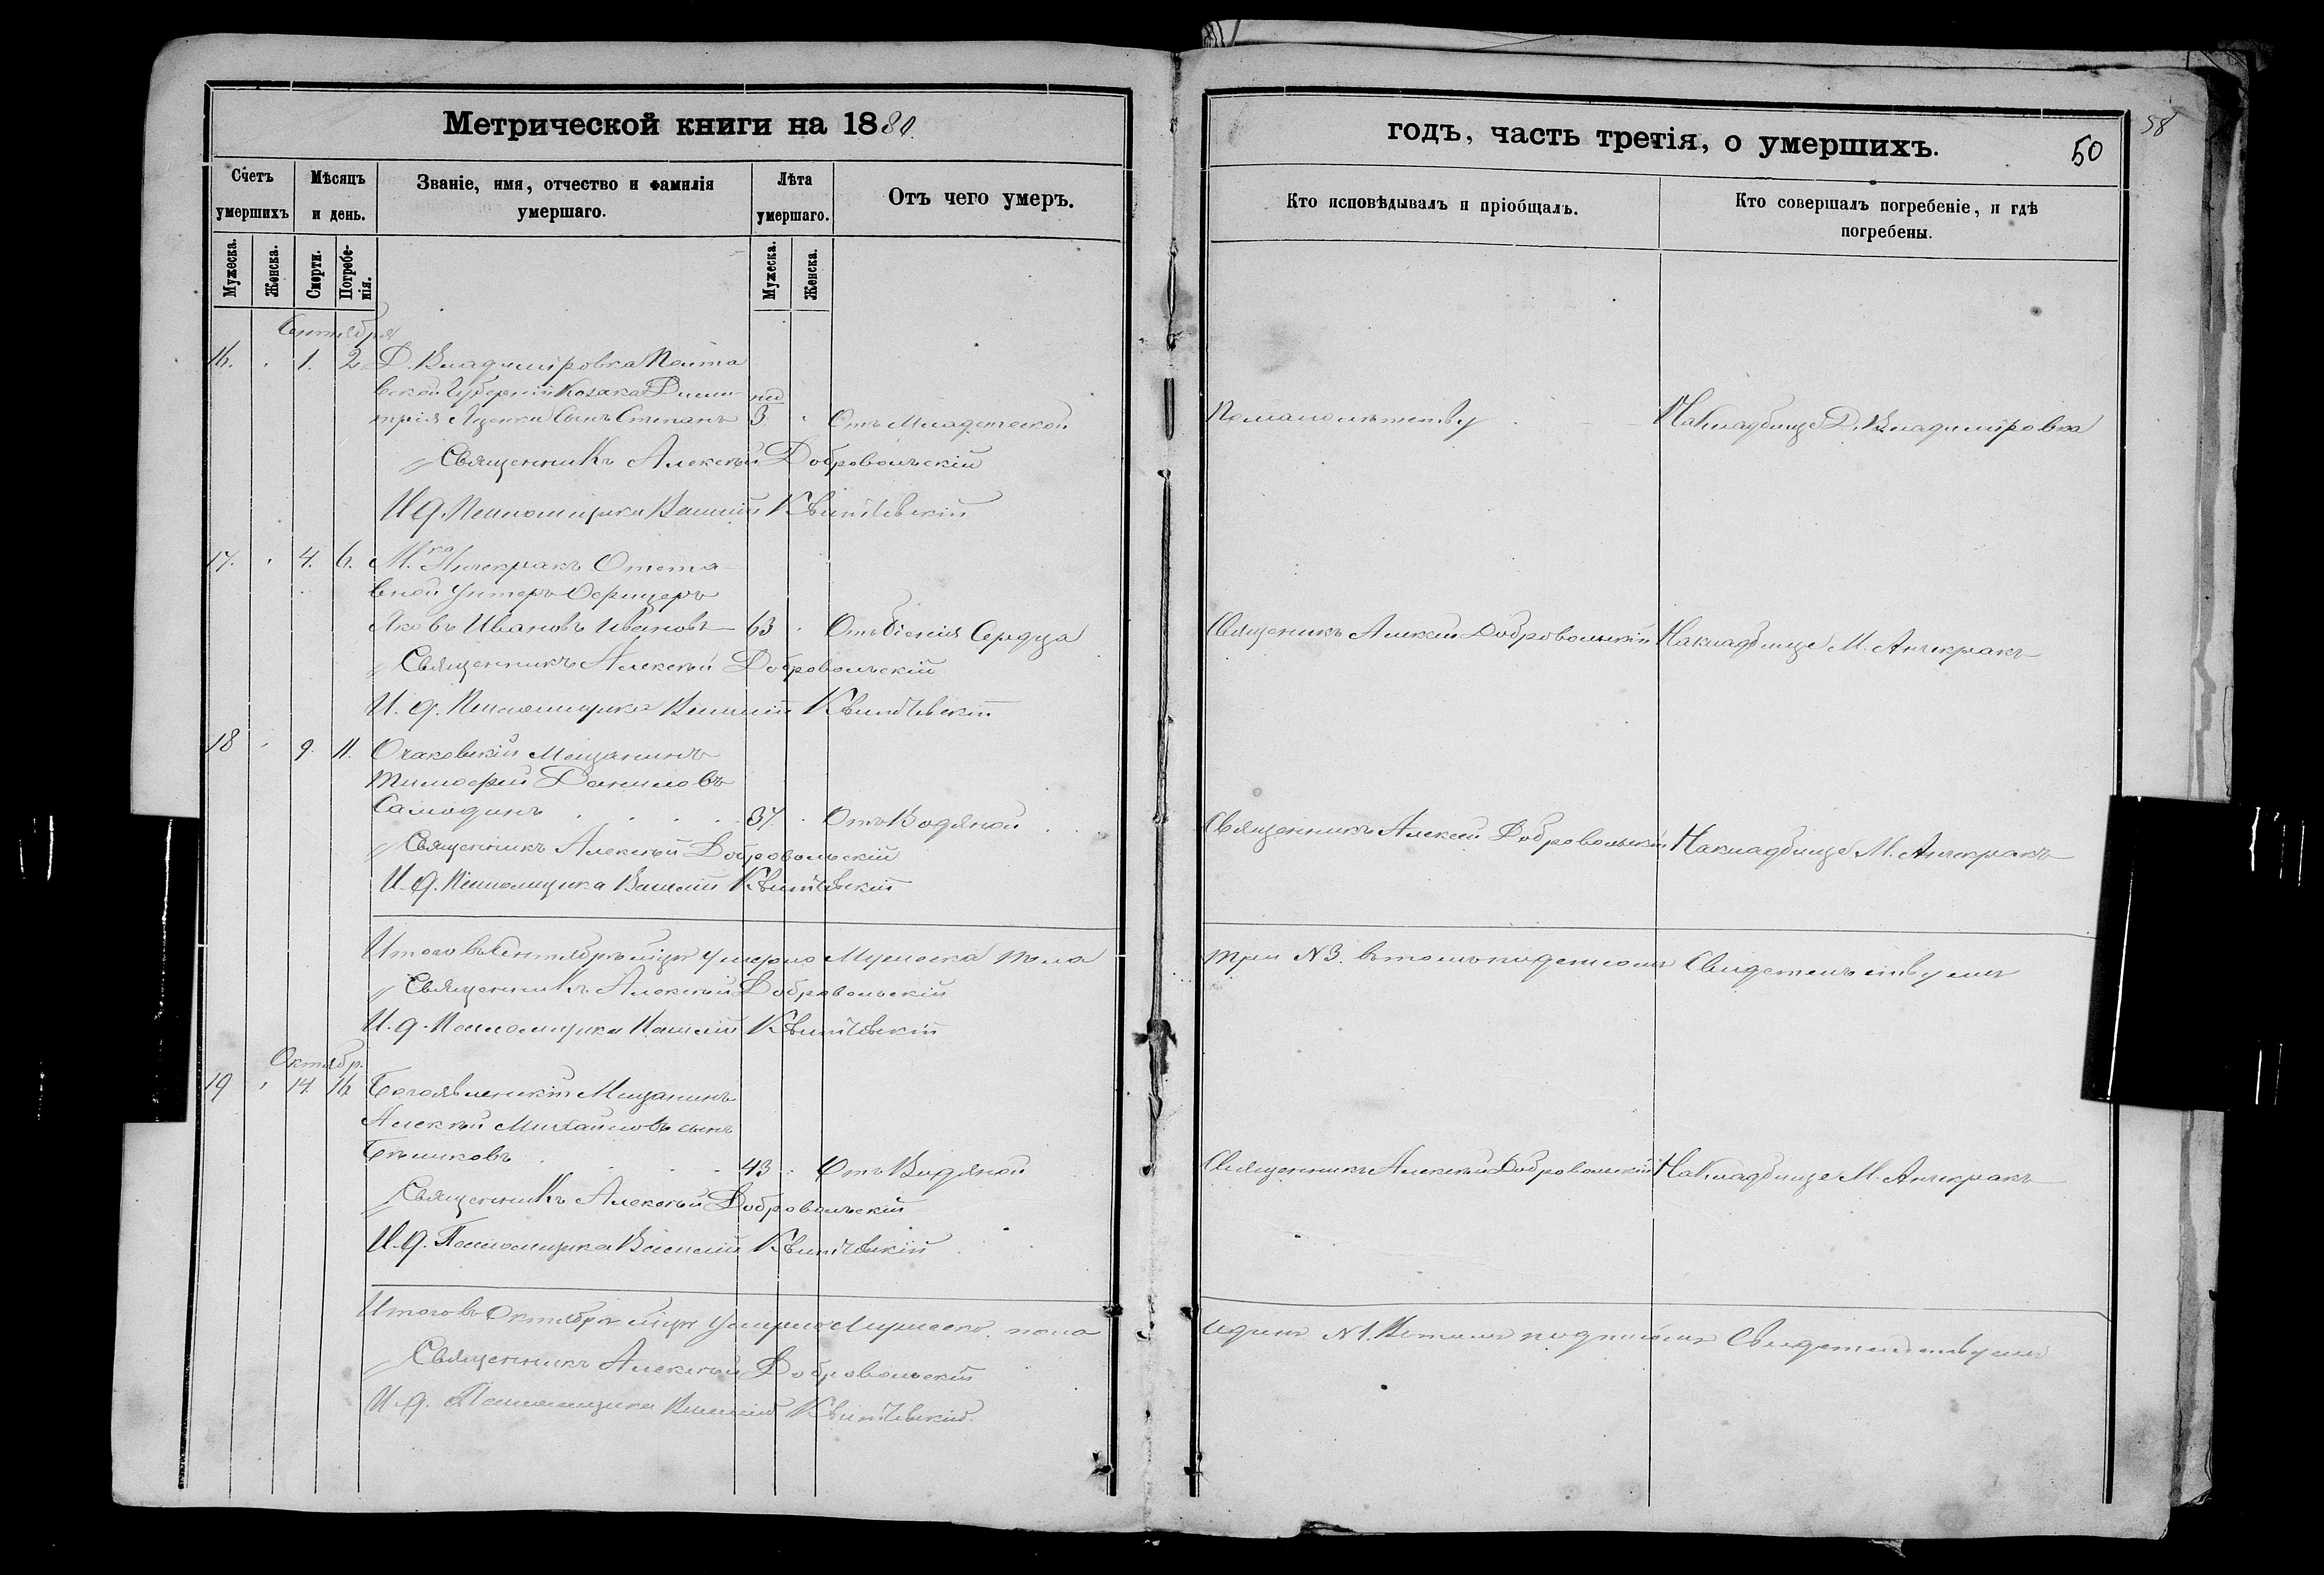 Метрической книги на 1880.
Счетъ умершихъ
Мѣсяцъ и день.
Званіе, имя, отчество и фамилія умершаго.
Лѣта умершаго.
Отъ чего умеръ.
Мужеска.
Женска.
Смерти.
Погребенія.
Мужеска.
Женска.
Сентября
16. 1. 2. Д. Владиміровка Полта
вской Губерніи Козака Дими
трія Яценки Сынъ Степанъ нед 3 Отъ Младенческой
Священникъ Алексѣй Добровольскій
И. д. Псаломщика Василій
17. 4. 6. М.ка Анчекракъ Отста
вной Унтеръ Офицеръ
Яковъ Ивановъ Ивановъ 63 Отъ біенія Сердца
Священникъ Алексѣй Добровольскій
И. д. Псаломщика Василій
18 9. 11. Очаковскій Мещанинъ
Тимофей Даниловъ
Самодинъ 37. Отъ Водяной
Священникъ Алексѣй Добровольскій
И. д. Псаломщика Василій
Итого въ Сентябрѣ м-цѣ умерло Мужеска пола
Священникъ Алексѣй Добровольскій
И. д. Псаломщика Василій
Октябр.
19 14 16 Богоявленскій Мещанинъ
Алексѣй Михайловъ сынъ
Бѣликовъ 43 Отъ Водяной
Священникъ Алексѣй Добровольскій
И. д. Псаломщика Василій
Итого въ Октябрѣ м-цѣ умерло Мужеско. пола
Священникъ Алексѣй Добровольскій
И. д. Псаломщика Василій
годъ, часть третія, о умершихъ.
58
50
Кто исповѣдывалъ и пріобщалъ.
Кто совершалъ погребеніе, и гдѣ погребены.
По малолѣтству На кладбище Д. Владиміровка
Священникъ Алексей Добровольскій На кладбище М. Анчекракъ
Священникъ Алексей Добровольскій На кладбище М. Анчекракъ
три №3. въ томъ подписомъ Свидетельствуемъ
Священникъ Алексѣй Добровольскій На Кладбище М. Анчекракъ
одинъ №1. Въ томъ подписомъ Свидетельствуемъ